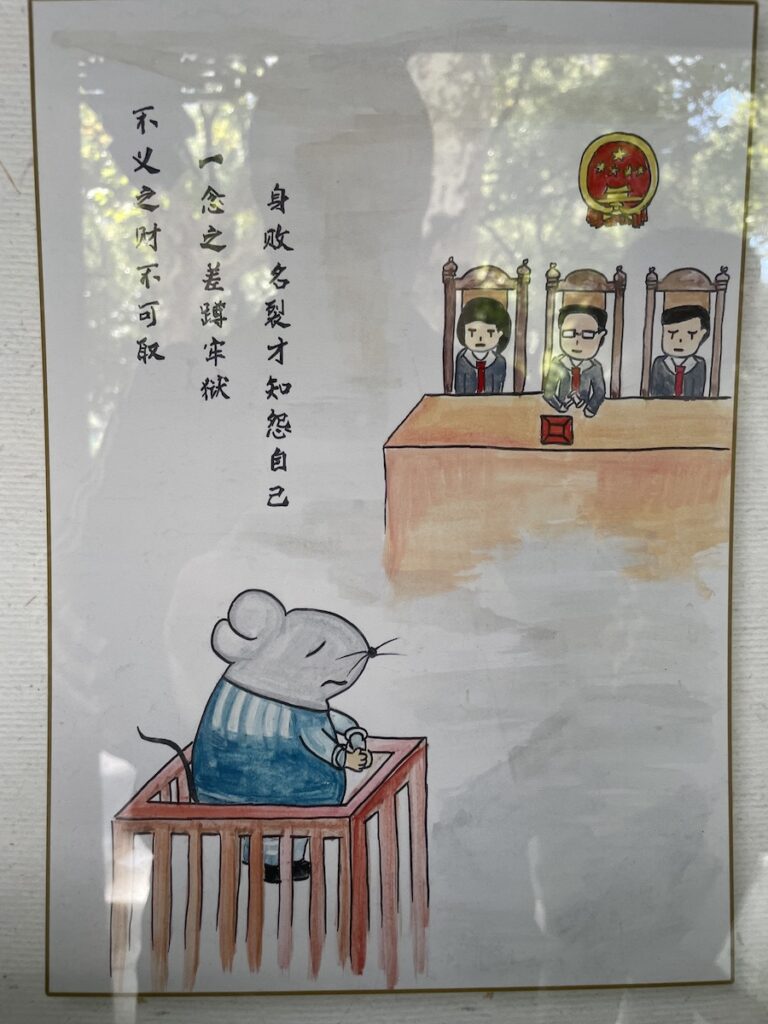 不义之财不可取
一念之差蹲牢狱
身败名裂才知怨自己